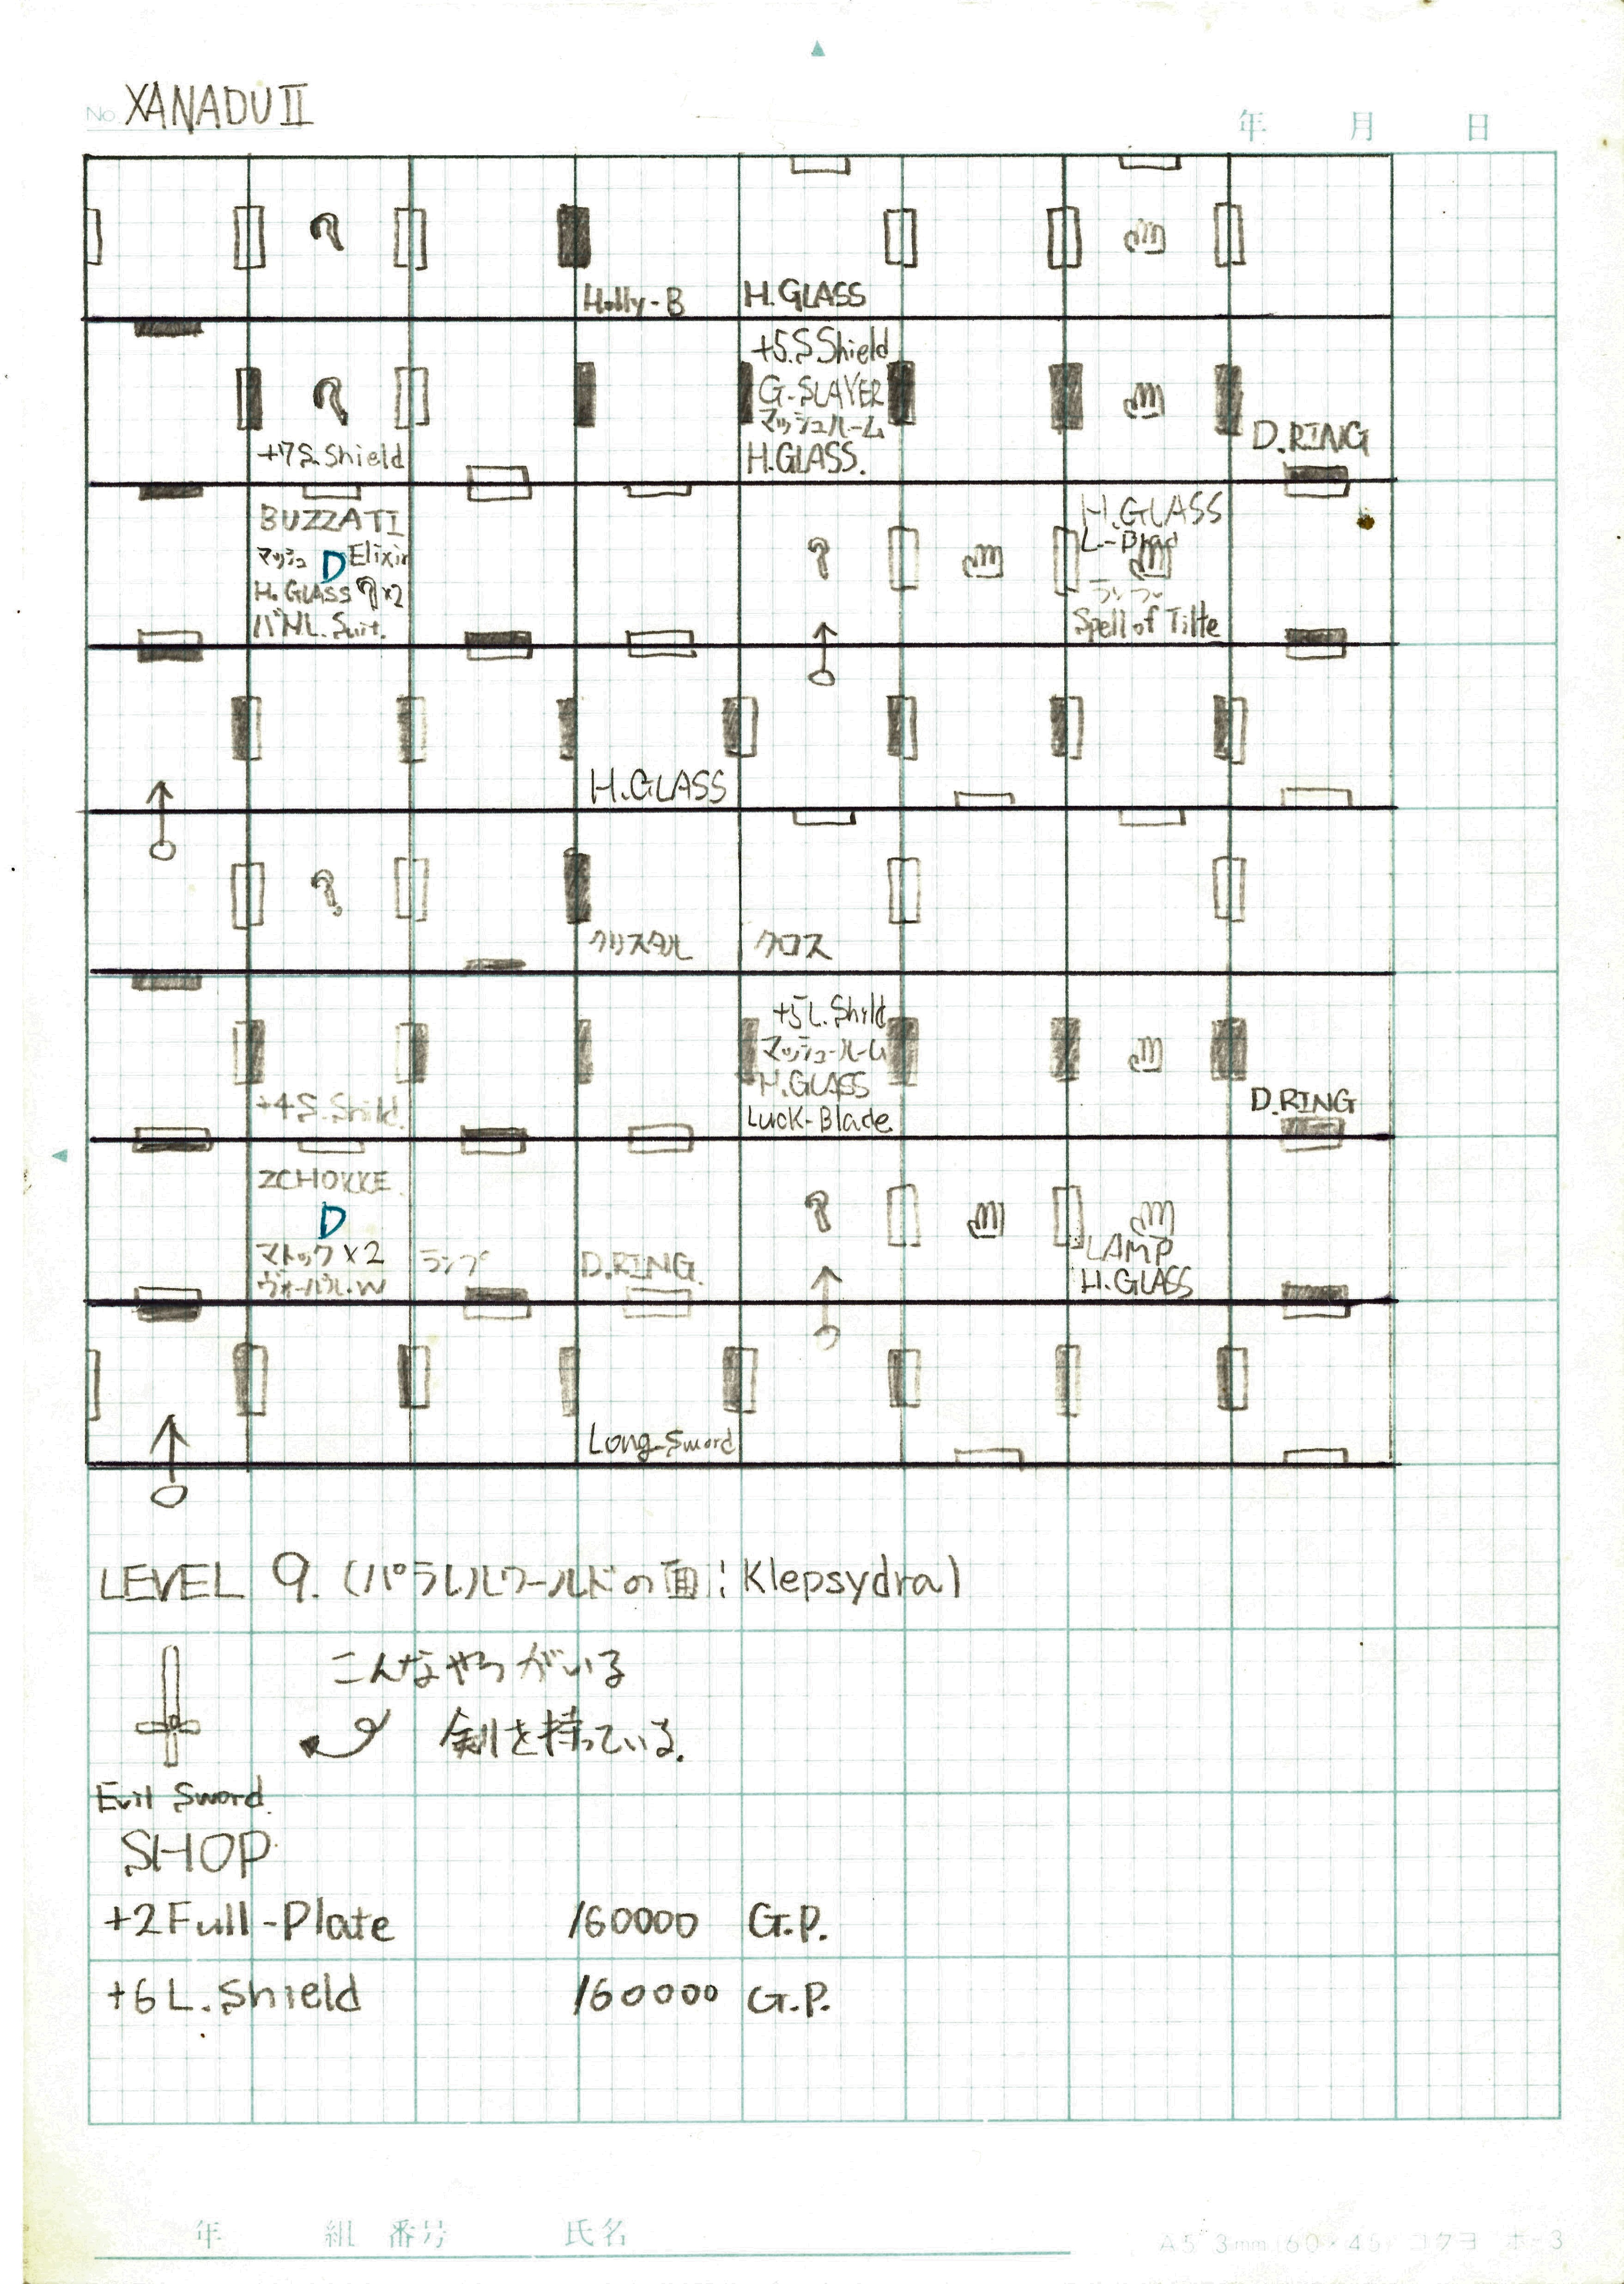 No. XANADU II
年 月 日
Holly-B
H.GLASS
+5.S.Shield
G-SLAYER
マッシュルーム
H.GLASS.
+7 S.Shield
D.RING
BUZZATI
マッシュ D Elixir
H.GLASS ×2
L. Suit.
H.GLASS
L.-Blad
Spell of Tilte
H.GLASS
クリスタル
クロス
+5 L.Shild
マッシュールーム
H.GLASS
Luck-Blade
+4 S.Shild.
D.RING
ZCHOKKE.
D
マトック×2
ヴォーパル.W
ランプ
D.RING.
LAMP
H.GLASS
Long-Sword
LEVEL 9. (パラレルワールドの面: Klepsydra)
こんなやつがいる
剣を持っている.
Evil Sword.
SHOP
+2 Full-Plate 160000 G.P.
+6 L.Shield 160000 G.P.
年 組 番号 氏名
A5 3mm(60×45) コクヨ ホ-3